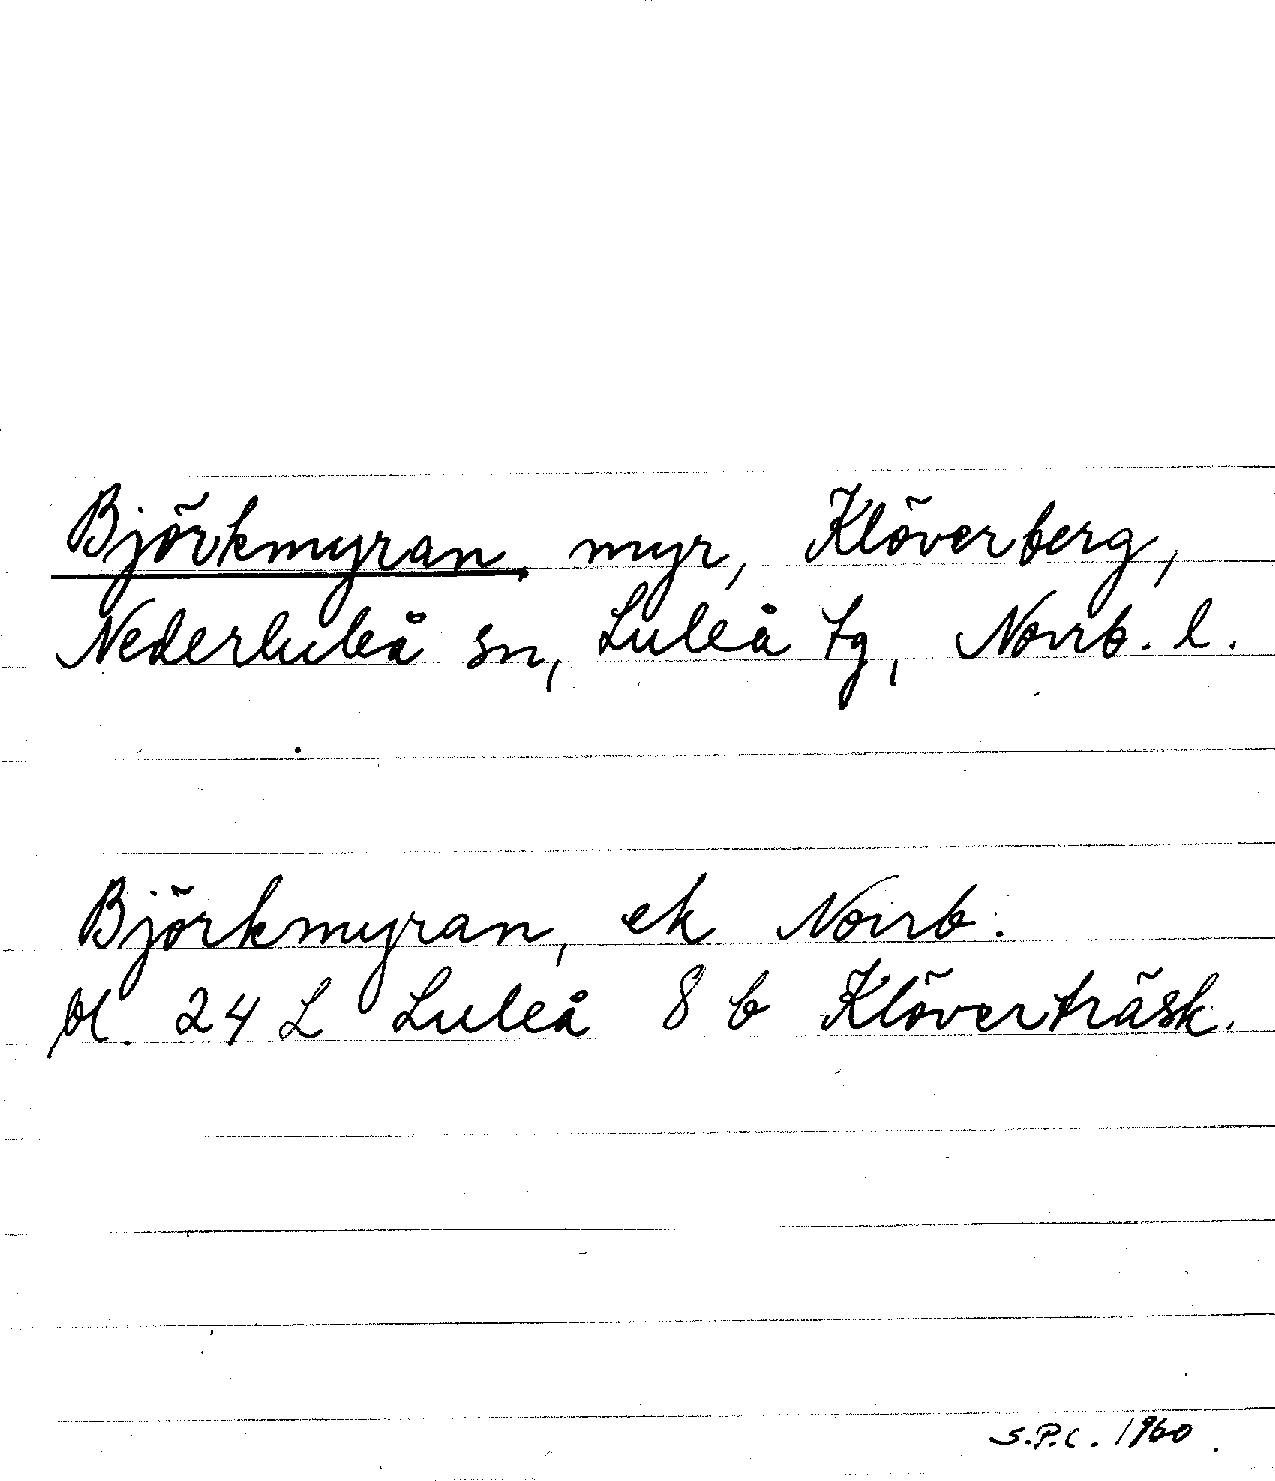 Björkmyran, myr, Klöverberg,
Nederluleå sn, Luleå tg, Norrb. l.
Björkmyran, ek Norrb.
bl. 24 L Luleå 8 b Klöverträsk.
S.P.C. 1960.